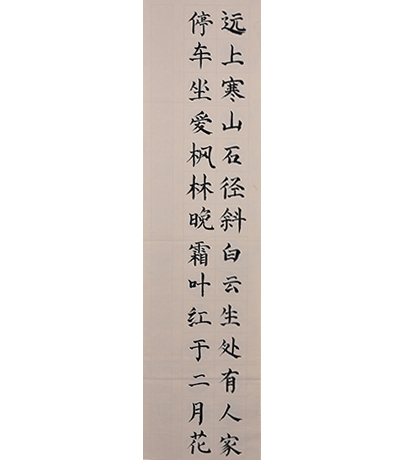 远上寒山石径斜白云生处有人家
停车坐爱枫林晚霜叶红于二月花